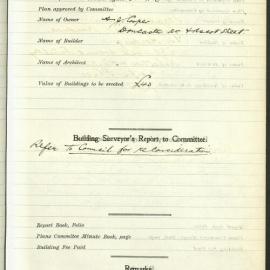 Plan approved by Committee
Name of Owner
Name of Builder
Name of Architect
Value of Buildings to be erected
Building Surveyor's Report to Committee:
Refer to Council for reconsideration
Report Book, Folio
Plans Committee Minute Book, page
Building Fee Paid
Remarks